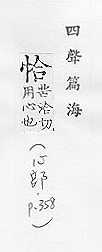 四聲篇海
恰
苦洽切
用心也
(心部.
p.358)